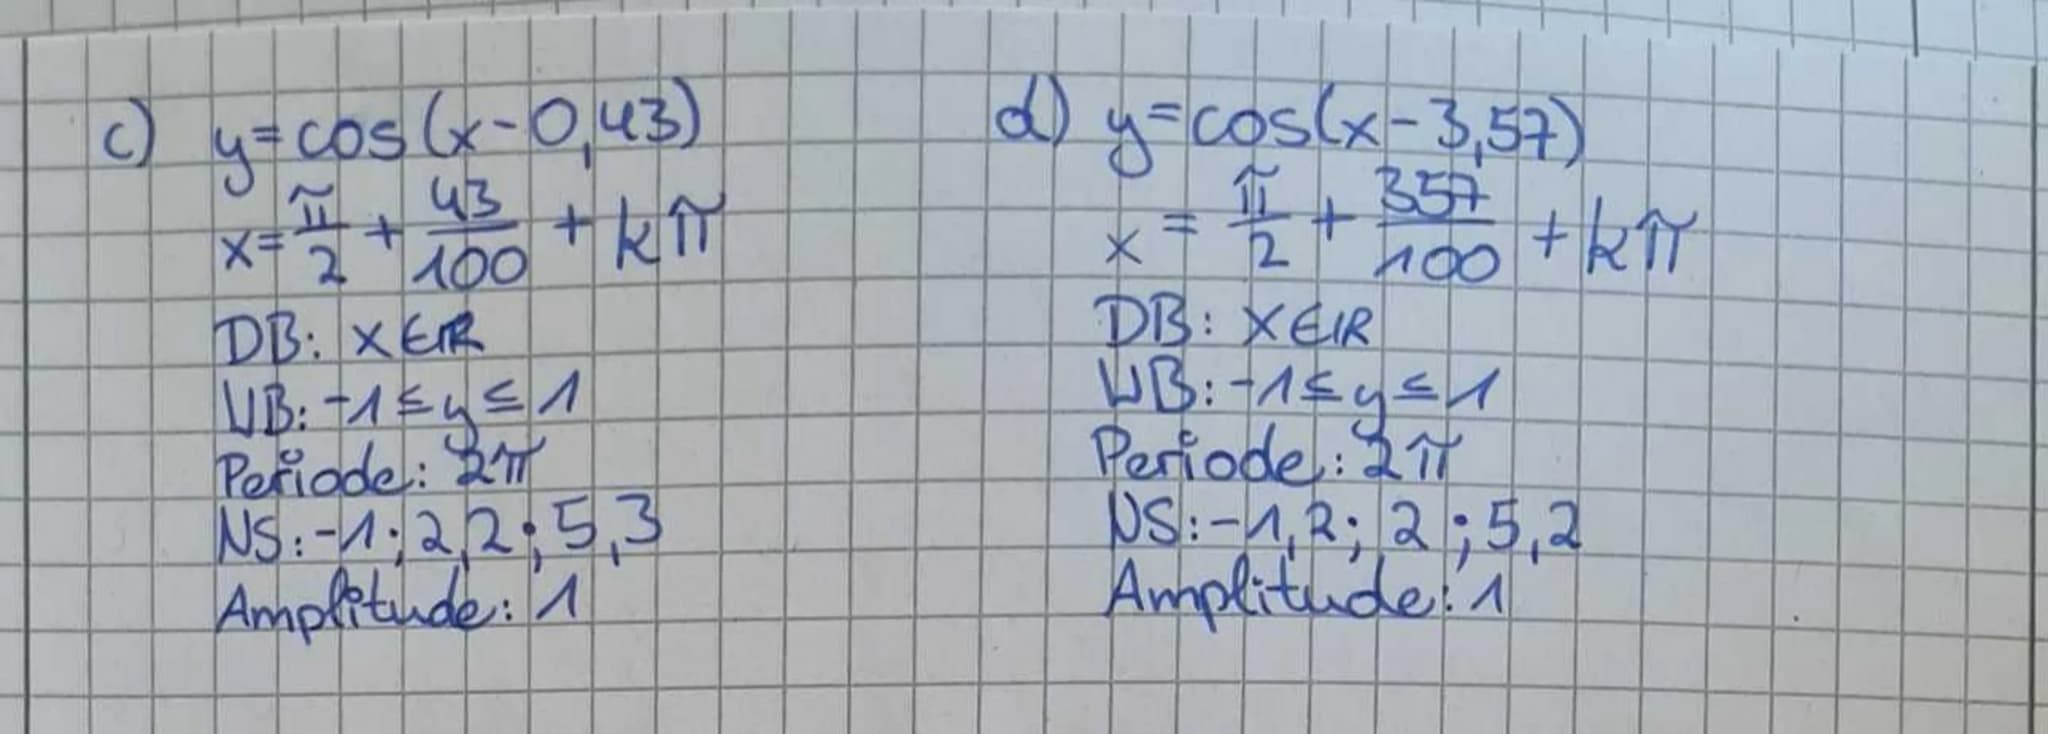 c) y=cos(x-0,43)
x=π/2 + 43/100 + kπ
DB: x∈ℝ
WB: -1≤y≤1
Periode: 2π
NS: -1; 2,2; 5,3
Amplitude: 1
d) y=cos(x-3,57)
x=π/2 + 357/100 + kπ
DB: x∈ℝ
WB: -1≤y≤1
Periode: 2π
NS: -1,2; 2; 5,2
Amplitude: 1